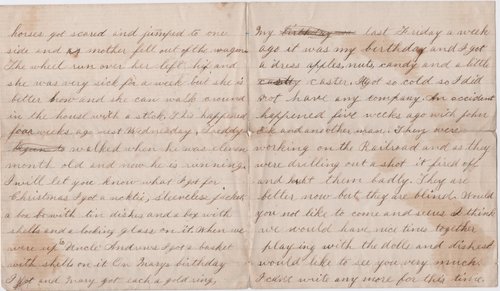 horses got scared and jumped to one
side and mother fell out of the wagon
The wheel run over her left hip and
she was very sick for a week but she is
better now and she can walk around
in the house with a stick. This happened
four weeks ago next Wednesday. Freddy
walked when he was eleven
month old and now he is running.
I will let you know what I got for
Christmas I got a necktie, sleeveless jacket
a box with tin dishes and a box with
shells and a looking glass on it. When we
were up to Uncle Andrews I got a basket
with shells on it On Marys birthday
I got and Mary got each a gold ring,
My birthday last Friday a week
ago it was my birthday and I got
a dress apples, nuts, candy and a little
caster. It got so cold so I did
not have any company. An accident
happened five weeks ago with John
and another man. They were
working on the Railroad and as they
were drilling out a shot it fired off
and hurt them badly. They are
better now but they are blind. Would
you not like to come and see us I think
we would have nice times together
playing with the dolls and dishes I
would like to see you very much.
I cant write any more for this time.